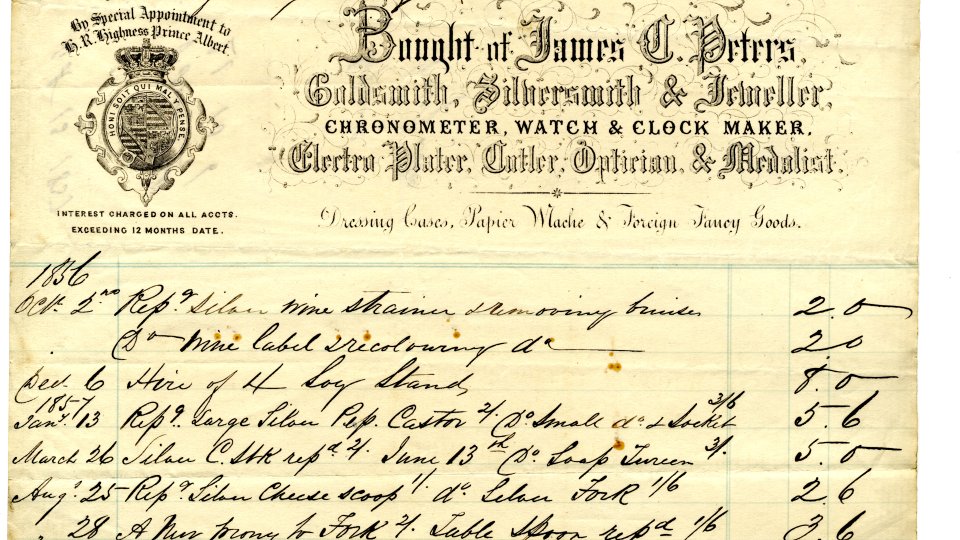 By Special Appointment to
H.R. Highness Prince Albert
HONI SOIT QUI MAL Y PENSE
INTEREST CHARGED ON ALL ACCTS.
EXCEEDING 12 MONTHS DATE.
Bought of James C. Peters,
Goldsmith, Silversmith & Jeweller,
CHRONOMETER, WATCH & CLOCK MAKER,
Electro Plater, Cutler, Optician, & Medalist.
Dressing Cases, Papier Mache & Foreign Fancy Goods.
1856
Octr. 2nd Repg Silver wine strainer & removing bruises 2.0
Do wine label & recolouring do 2.0
Dec. 6 Hire of 4 Soy Stands 8.0
1857
Jany. 13 Repg. Large Silver Pep. Castor 2/. Do Small do. & Socket 3/6 5.6
March 26 Silver C. Stk repd 2/. June 13th Do. Soup Tureen 3/. 5.0
Augt. 25 Repg Silver Cheese scoop 1/. do. Silver Fork 1/6 2.6
" 28 A New prong to Fork 2/. Table Spoon repd 1/6 3.6